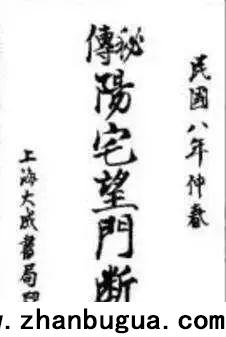 民國八年仲春
秘傳
陽宅望門断
上海大成書局印
www.zhanbugua.com